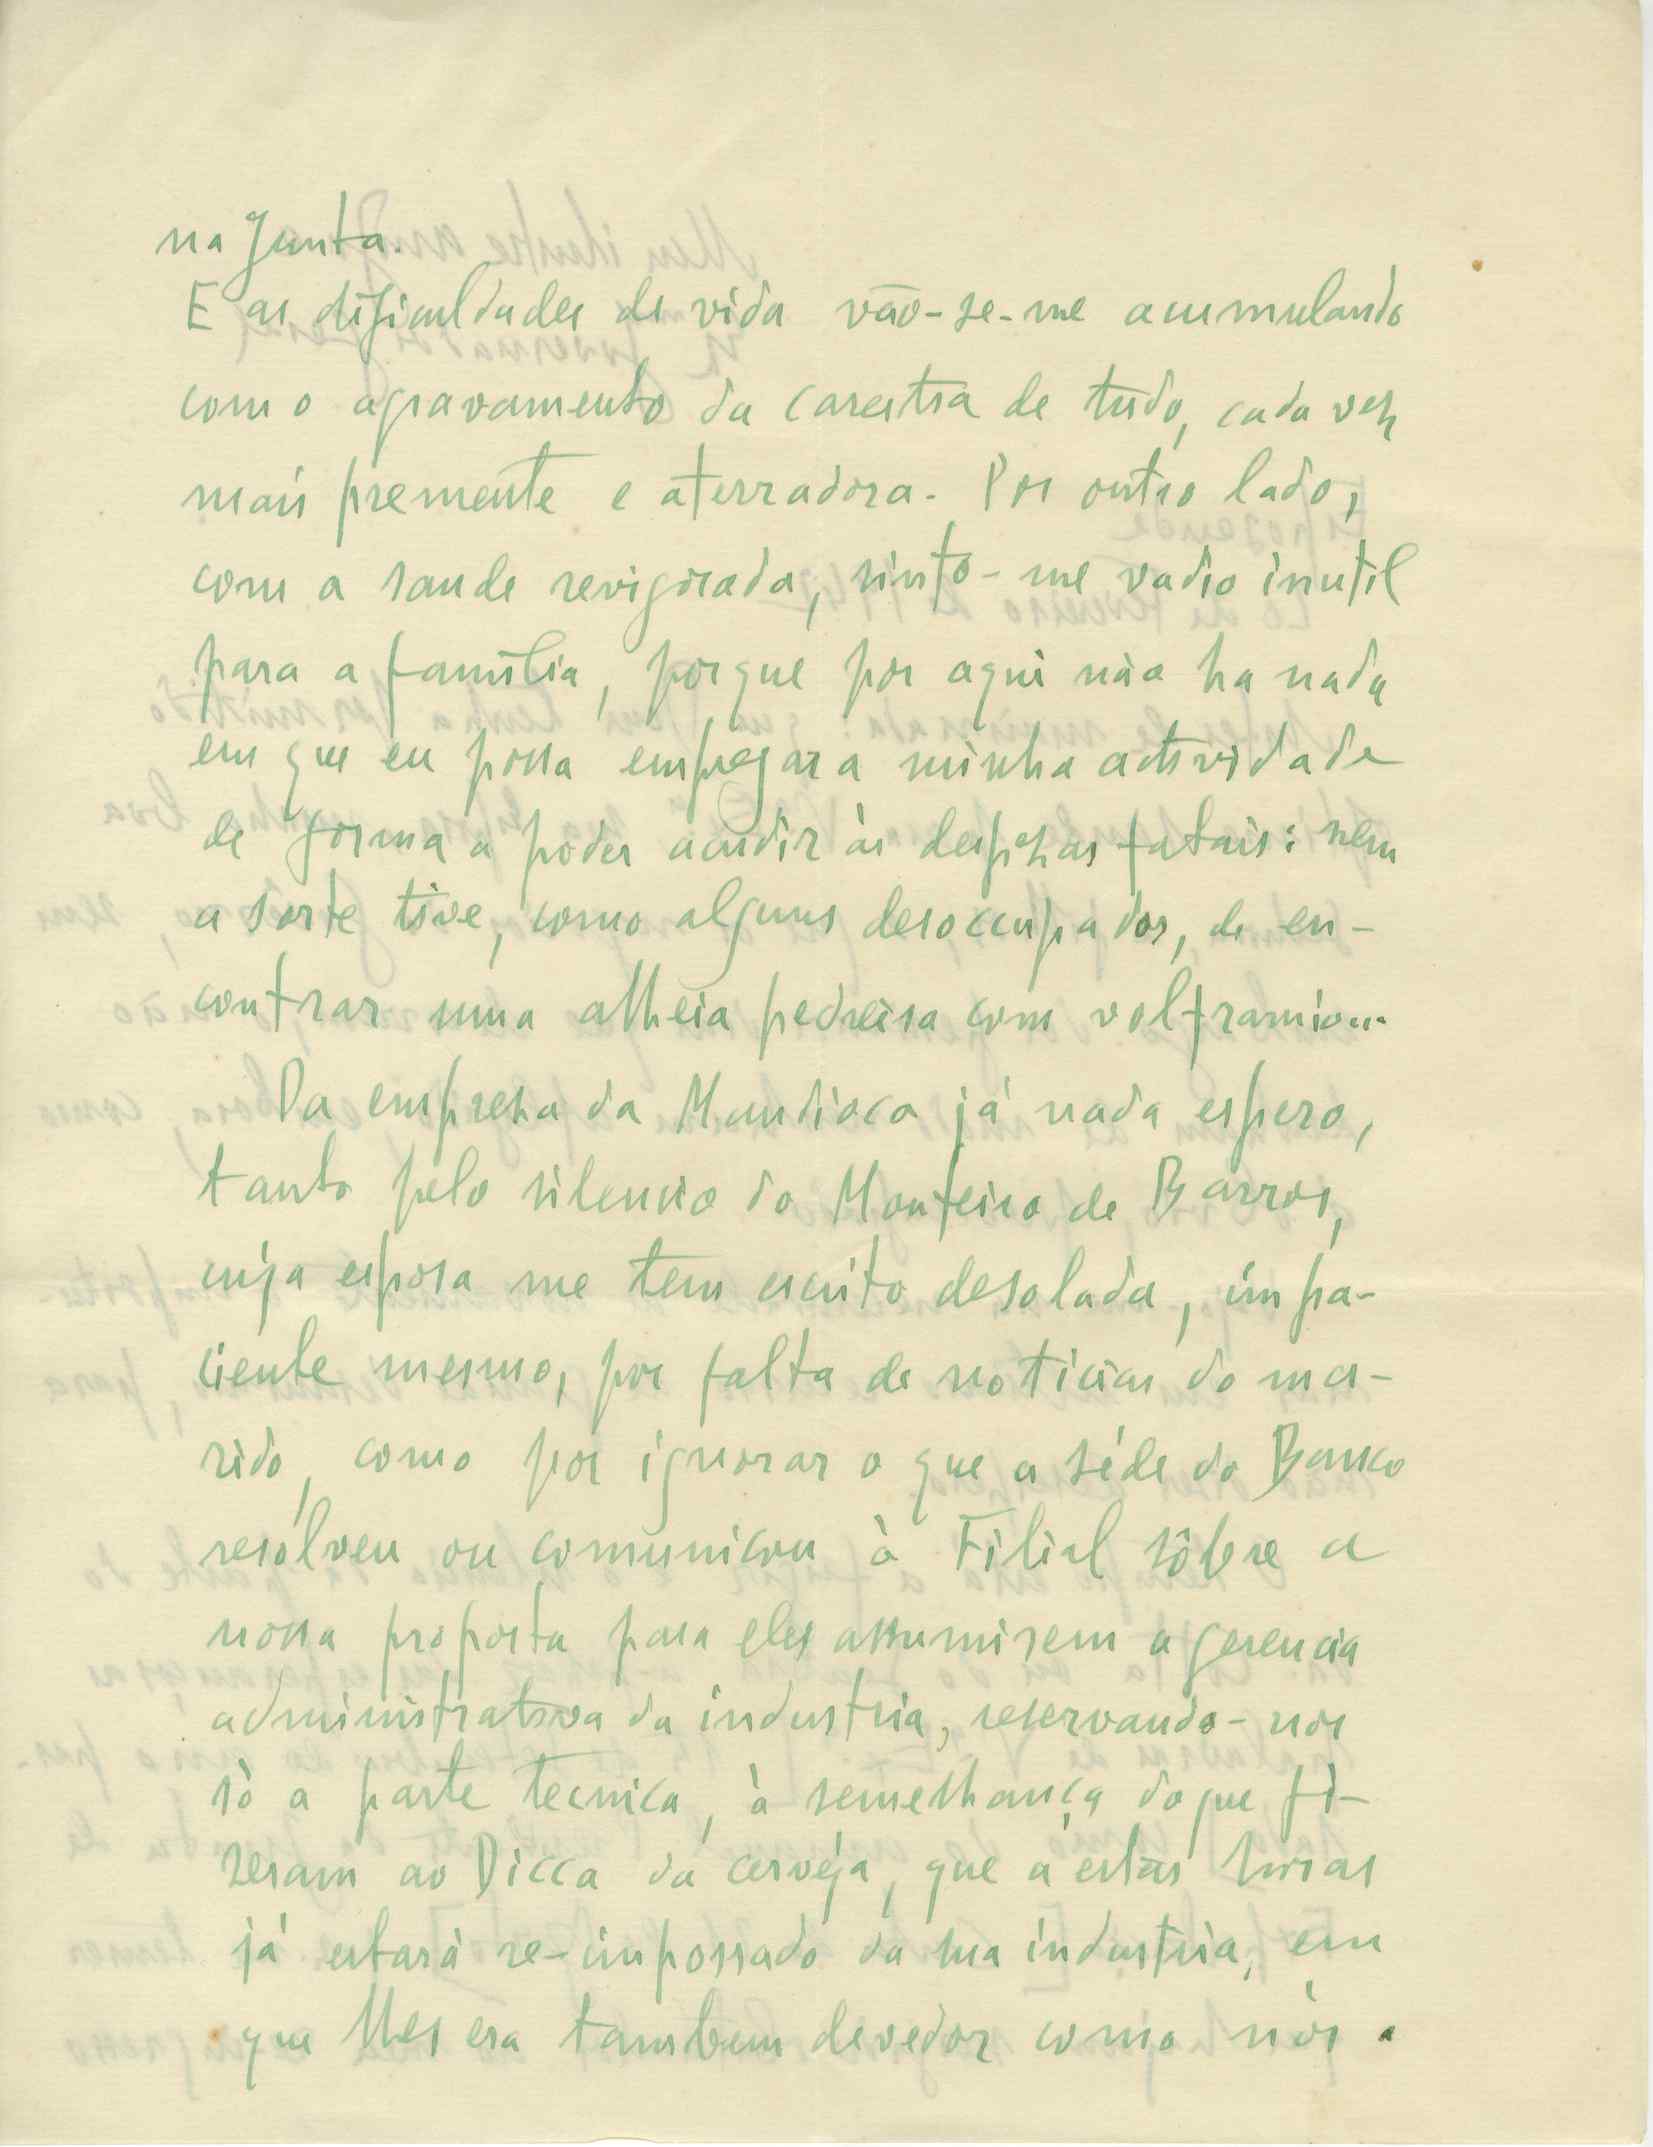 na Junta.
E as dificuldades de vida vão-se-me acumulando
com o agravamento da carestia de tudo, cada vez
mais premente e aterradora. Por outro lado,
com a saude revigorada, sinto-me vadio inutil
para a família, porque por aqui não ha nada
em que eu possa empregar a minha actividade
de forma a poder acudir às despezas fatais: nem
a sorte tive, como alguns desoccupados, de en-
contrar uma alheia pedreira com volframio...
Da empreza da Mandioca já nada espero,
tanto pelo silencio do Monteiro de Barros,
cuja esposa me tem escrito desolada, impa-
ciente mesmo, por falta de noticias do ma-
rido, como por ignorar o que a séde do Banco
resolveu ou comunicou à Filial sôbre a
nossa proposta para eles assumirem a gerencia
administrativa da industria, reservando-nos
só a parte tecnica, à semelhança do que fi-
zeram ao Dicca da cerveja, que a estas horas
já estará re-impossado da sua industria, em
que lhes era tambem devedor como nós.